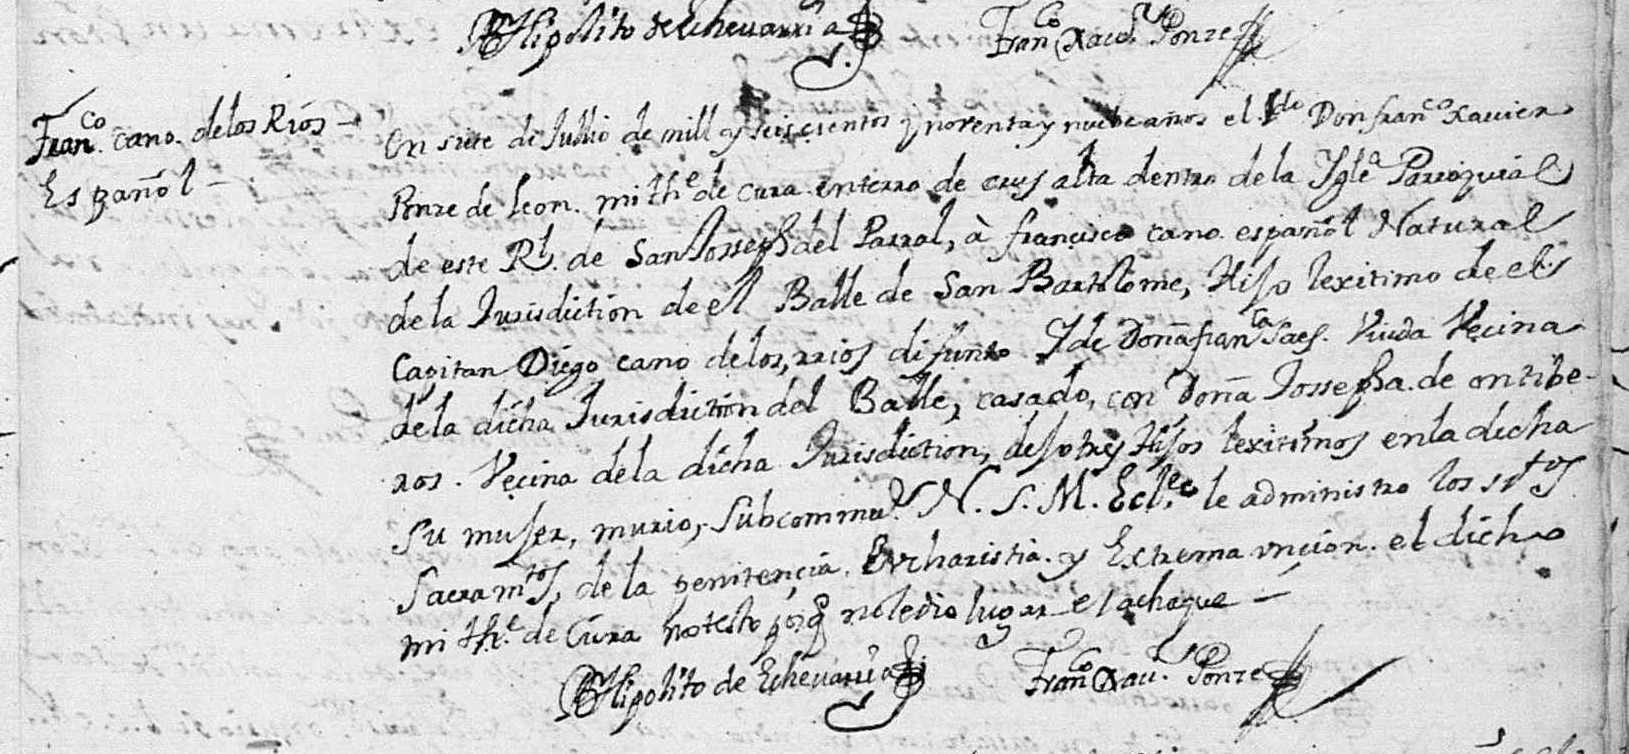 Br Hipolito de Echeuarria Franco Xaur Ponze
Franco cano. de los Rios En siete de Jullio de mill y seiscientos y nobenta y nuebe años el Ldo Don franco Xauier
Español Ponze de leon. mi the de cura enterro de crus alta dentro de la Ygla Parroquial
de este Rl. de San Josseph del Parral, à francisco cano español Natural
de la Jurisdiction de el Balle de San Bartolome, Hijo lexitimo de el
Capitan Diego cano de los rrios difunto Y de Doña franca Saes. Viuda Vecina
de la dicha Jurisdiction del Balle, casado, con Doña Jossepha de ontibe-
ros. Vecina de la dicha Jurisdiction, dejo tres Hijos lexitimos en la dicha
su mujer, murio, Subcommu N. S. M. Eclec le administro los stos
Sacramtos, de la penitencia. Eucharistia. y Extrema uncion. el dicho
mi the. de Cura no testo porq no le dio lugar el achaque
Br Hipolito de Echeuarria Franco Xaur. Ponze